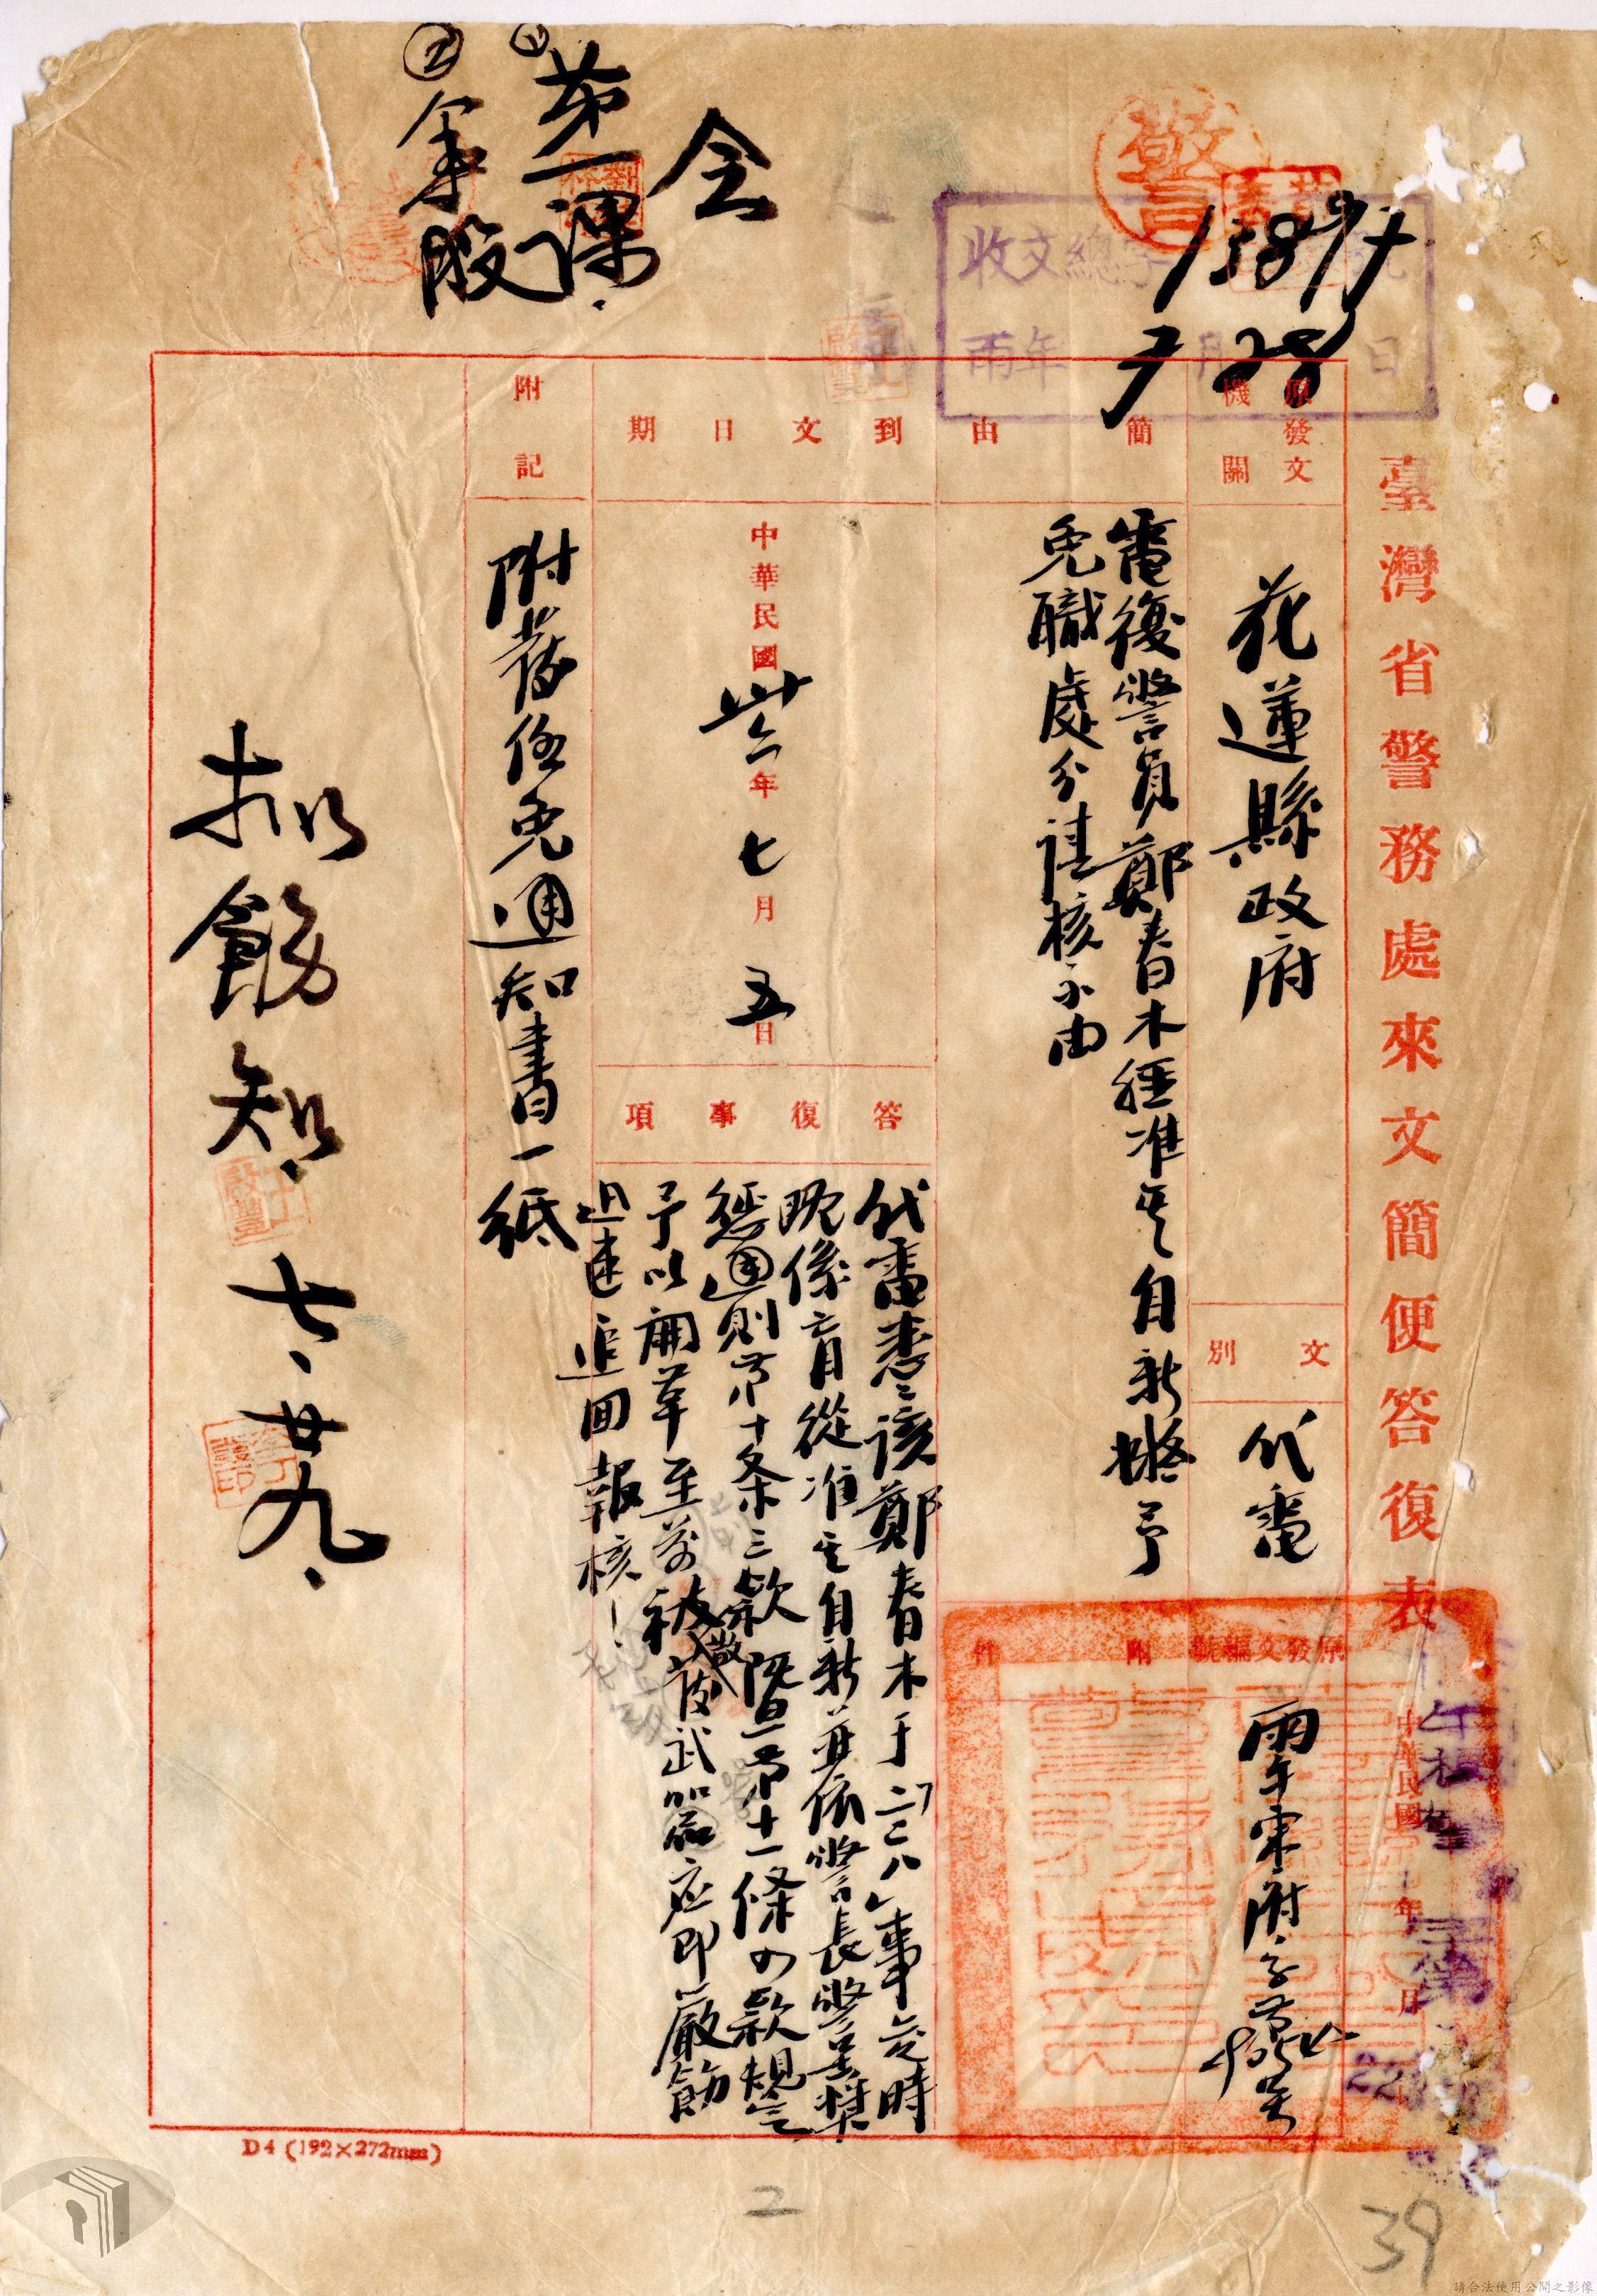 令
第一課
㊁軍股
收文總字 號
13897
丙年 7月28日
臺灣省警務處來文簡便答復表
中華民國 年 月
原發文機關
花蓮縣政府
文別
代電
原發文編號
簡由
電復警員鄭春木經准其自新擬予
免職處分請核示由
附件
到文日期
中華民國卅六年七月五日
答復事項
代電悉該鄭春木于二二八事變時
既係盲從准其自新並依警長警士獎
懲通則第十条三款暨第十一條四款規定
予以開革至前被散發武器应即嚴飭
迅速追回報核
附記
附發任免通知書一紙
拟飭知、七、廿九、
D4(192×272mm)
2
39
請合法使用公開之影像